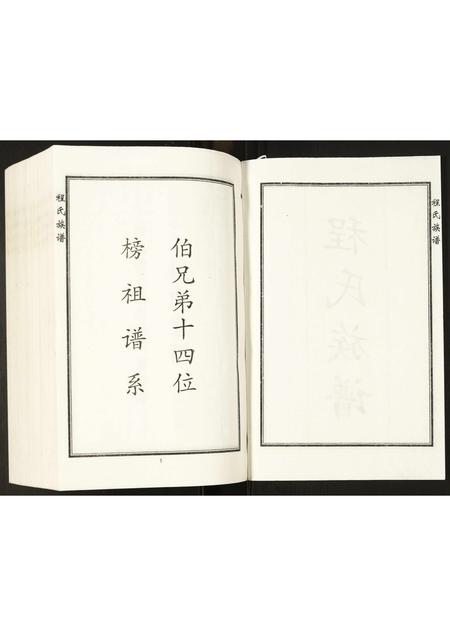 程氏族谱
程氏族谱
伯兄弟十四位
榜祖谱系
程氏族谱
1